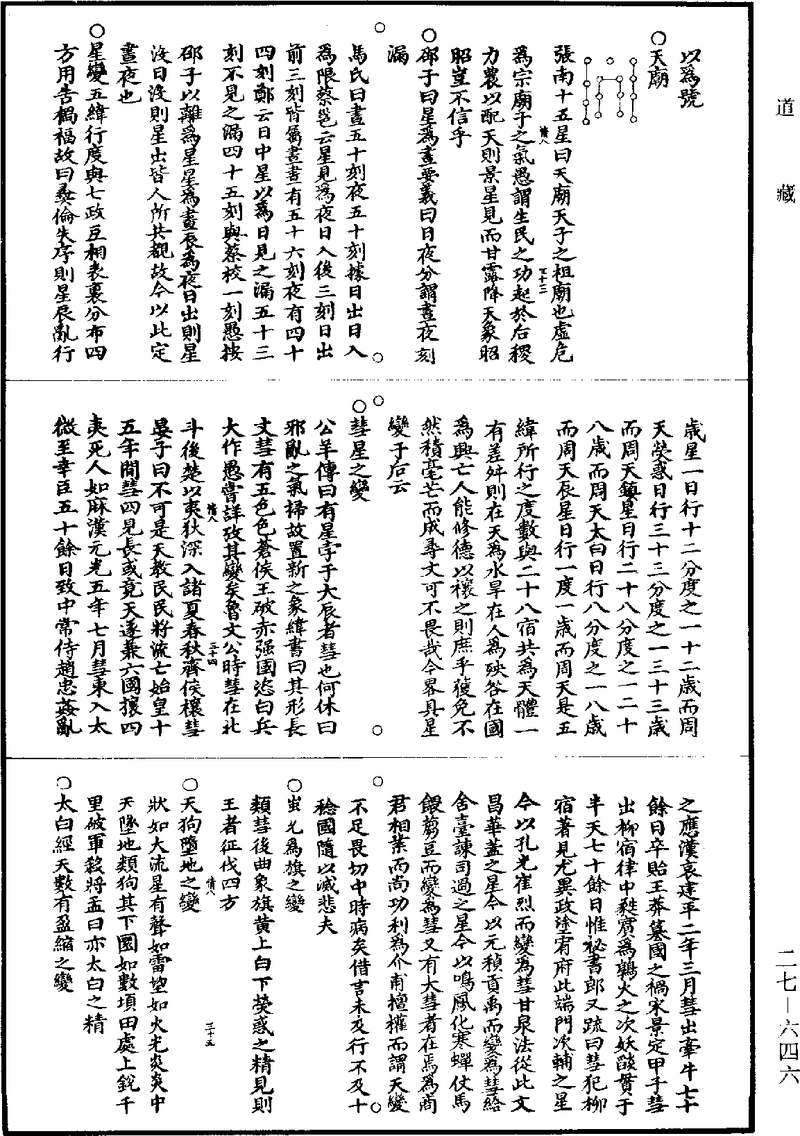 道藏
以爲號
○天廟
張南十五星曰天廟天子之祖廟也虛危
爲宗廟子之氣愚謂生民之功起於后稷
力農以配天則景星見而甘露降天象昭
昭豈不信乎
○邵子曰星爲晝要義曰日夜分謂晝夜刻
漏
馬氏曰晝五十刻夜五十刻據日出日入
爲限蔡邕云星見爲夜日入後三刻日出
前三刻皆屬晝晝有五十六刻夜有四十
四刻鄭云日中星以爲日見之漏五十三
刻不見之漏四十五刻與蔡校一刻愚按
邵子以離爲星星爲晝辰爲夜日出則星
沒日沒則星出皆人所共觀故今以此定
晝夜也
○星變五緯行度與七政互相表裏分布四
方用告禍福故曰彝倫失序則星辰亂行
歲星一日行十二分度之一十二歲而周
天熒惑日行三十三分度之一三十三歲
而周天鎮星日行二十八分度之一二十
八歲而周天太白日行八分度之一八歲
而周天辰星日行一度一歲而周天是五
緯所行之度數與二十八宿共爲天體一
有差舛則在天爲水旱在人爲殃咎在國
爲興亡人能修德以禳之則庶乎獲免不
然積毫芒而成尋丈可不畏哉今畧具星
變于右云
○彗星之變
公羊傳曰有星孛于大辰者彗也何休曰
邪亂之氣掃故置新之象緯書曰其形長
丈彗有五色色蒼侯王破赤强國恣白兵
大作愚嘗詳攷其變矣魯文公時彗在北
斗後楚以夷狄深入諸夏春秋齊侯禳彗
晏子曰不可是天教民民將流亡始皇十
五年間彗四見長或竟天遂兼六國攘四
夷死人如麻漢元光五年七月彗東入太
微至幸臣五十餘日致中常侍趙忠姦亂
之應漢哀建平二年三月彗出牽牛七十
餘日卒貽王莽篡國之禍宋景定甲子彗
出柳宿律中蕤賓爲鶉火之次妖燄貫于
半天七十餘日惟祕書郎又疏曰彗犯柳
宿著見尤異政塗宥府此端門次輔之星
今以孔光崔烈而變爲彗甘泉法從此文
昌華蓋之星今以元稹貢禹而變爲彗給
舍臺諫司過之星今以鳴鳳化寒蟬仗馬
餵蒭豆而變爲彗又有大彗者在焉爲商
君相葉而尚功利爲介甫擅權而謂天變
不足畏切中時病矣借言未及行不及十
稔國隨以滅悲夫
○蚩尤爲旗之變
類彗後曲象旗黃上白下熒惑之精見則
王者征伐四方
○天狗墮地之變
狀如大流星有聲如雷墜如火光炎炎中
天墜地類狗其下圜如數頃田處上銳千
里破軍殺將孟曰亦太白之精
○太白經天數有盈縮之變
二七—六四六